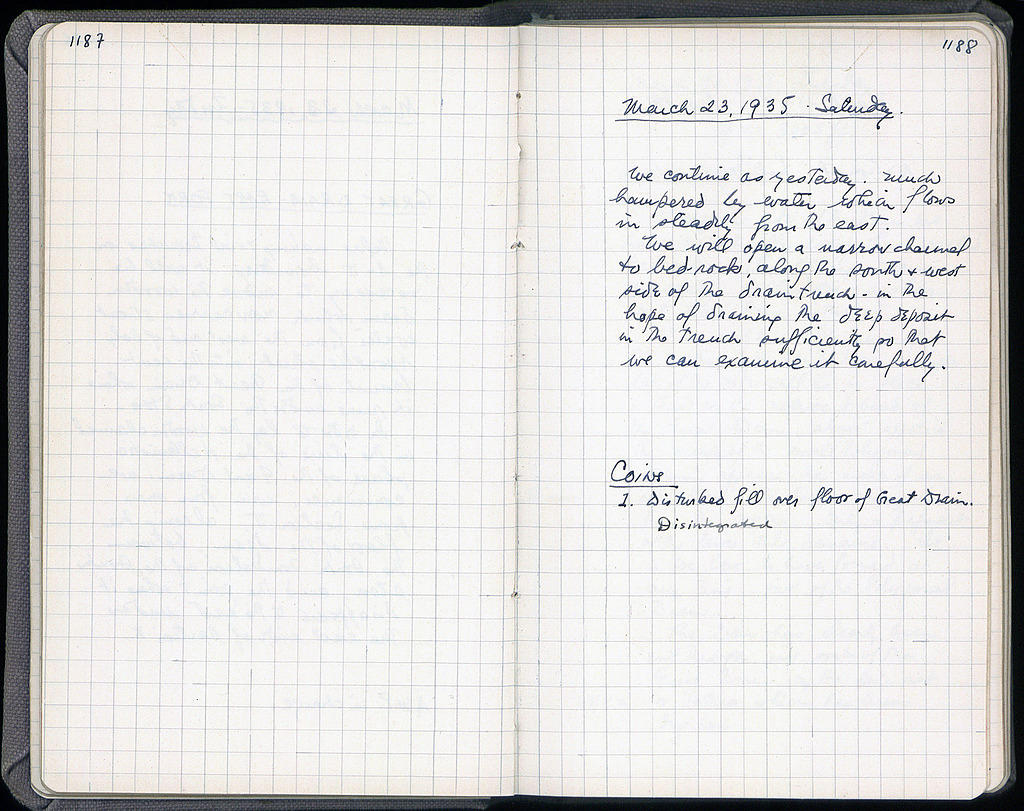 1187
1188
March 23, 1935 · Saturday.
We continue as yesterday. Much
hampered by water which flows
in steadily from the east.
We will open a narrow channel
to bed-rock, along the south + west
side of the drain trench - in the
hope of draining the deep deposit
in the trench sufficiently so that
we can examine it carefully.
Coins
1. Disturbed fill over floor of Great Drain.
Disintegrated